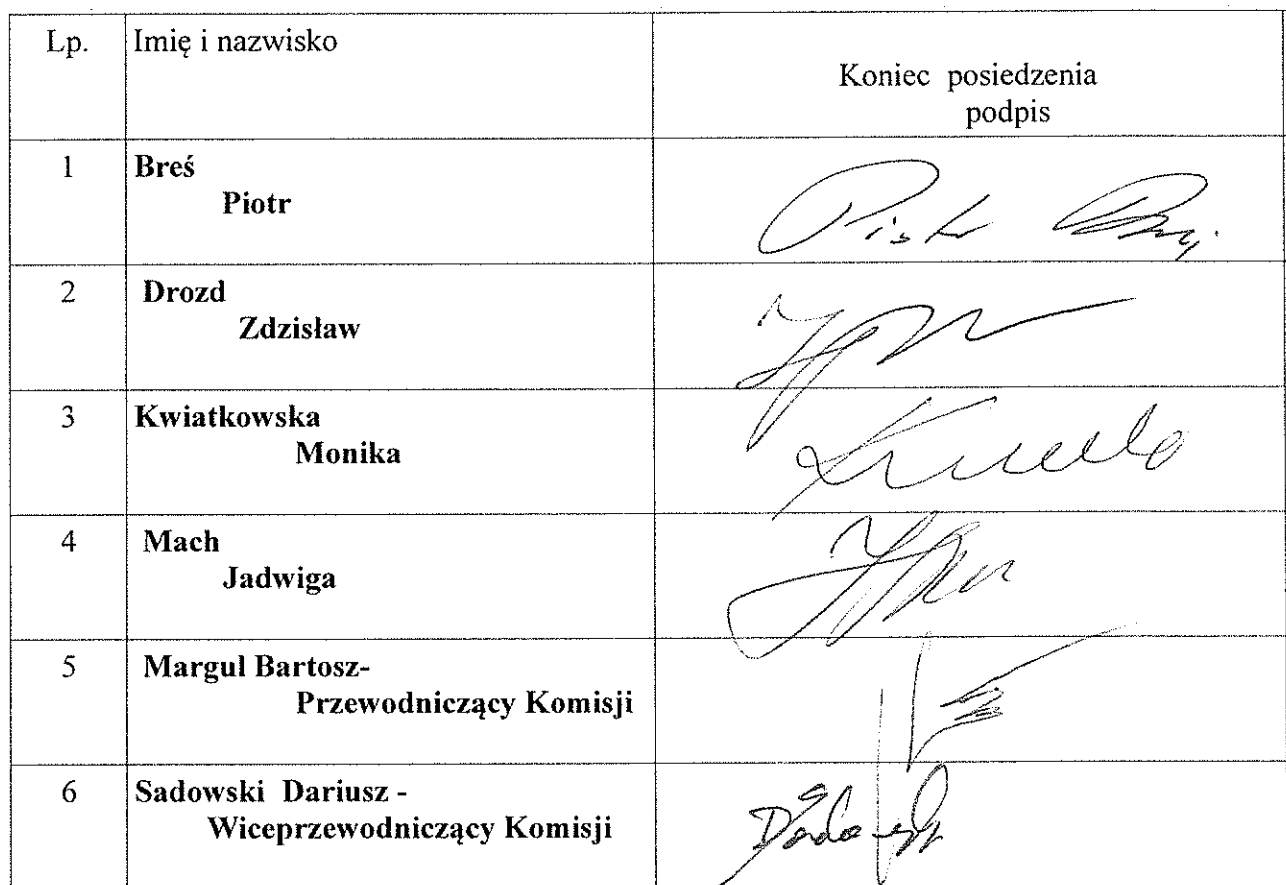 Lp. Imię i nazwisko
Koniec posiedzenia
podpis
1 Breś
Piotr
2 Drozd
Zdzisław
3 Kwiatkowska
Monika
4 Mach
Jadwiga
5 Margul Bartosz-
Przewodniczący Komisji
6 Sadowski Dariusz -
Wiceprzewodniczący Komisji